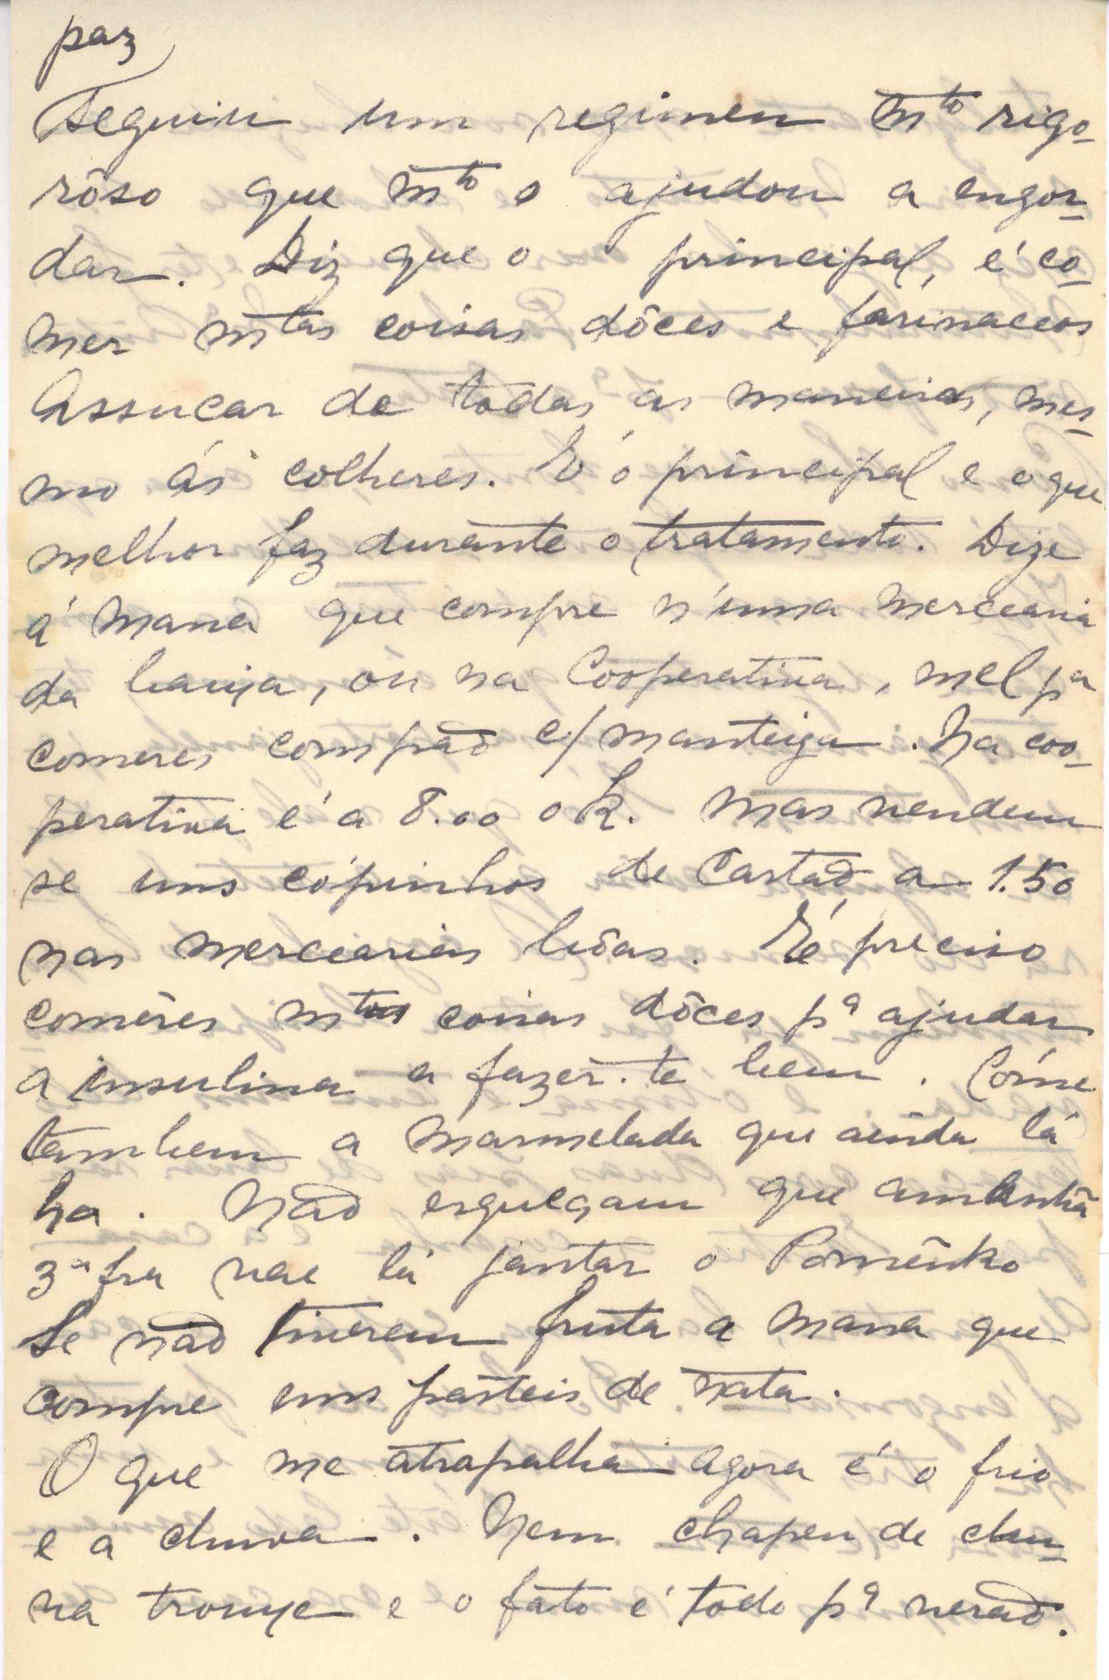 paz
Seguiu um regimen mto rigo-
rôso que mto o ajudou a engor-
dar. Diz que o principal, é co-
mer mtas coisas dôces e farinaceos
Assucar de todas as maneiras, mes-
mo ás colheres. É o principal e o que
melhor faz durante o tratamento. Dize
á Mana que compre n'uma mercearia
da baixa, ou na Cooperativa, mel pa
comeres com pão c/ manteiga. Na coo-
perativa é a 8.00 o k. Mas vendem
se uns cópinhos de Cartão a 1.50
nas mercearias bôas. É preciso
comêres mtas coisas dôces pa ajudar
a insulina a fazer-te bem. Cóme
tambem a marmelada que ainda lá
ha. Não esqueçam que amanhã
3a fra vae lá jantar o
Se não tiverem fruta a Mana que
compre uns pasteis de nata.
O que me atrapalha agora é o frio
e a chuva. Nem chapeu de chu-
va trouxe e o fato é todo pa verão.